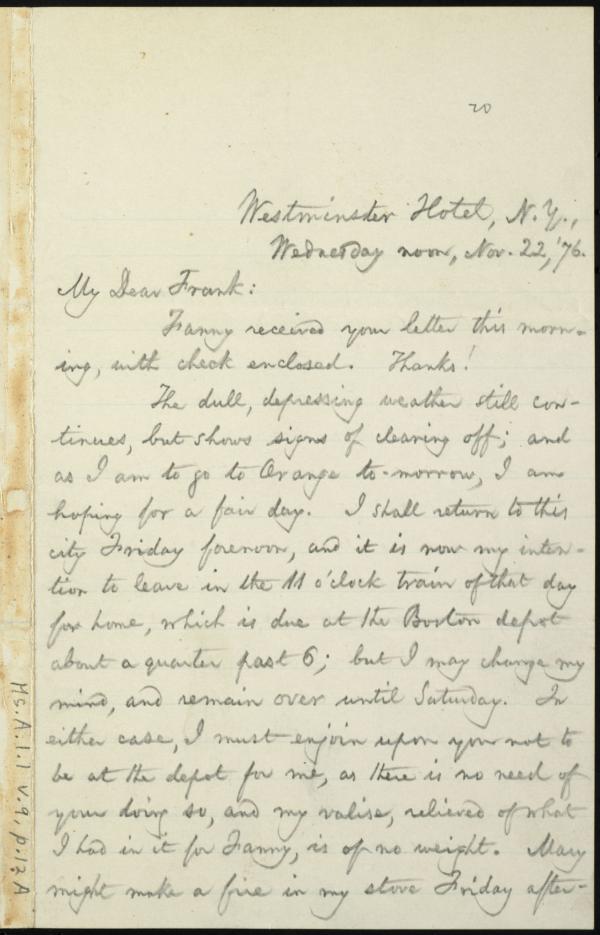 20
Westminster Hotel, N.Y.,
Wednesday noon, Nov. 22, '76.
My Dear Frank:
Fanny received your letter this morn-
ing, with check enclosed. Thanks!
The dull, depressing weather still con-
tinues, but shows signs of clearing off; and
as I am to go to Orange to-morrow, I am
hoping for a fair day. I shall return to this
city Friday forenoon, and it is now my inten-
tion to leave in the 11 o'clock train of that day
for home, which is due at the Boston depot
about a quarter past 6; but I may change my
mind, and remain over until Saturday. In
either case, I must enjoin upon you not to
be at the depot for me, as there is no need of
your doing so, and my valise, relieved of what
I had in it for Fanny, is of no weight. Mary
might make a fire in my stove Friday after-
Ms. A. 1.1 v. 9, p. 12A